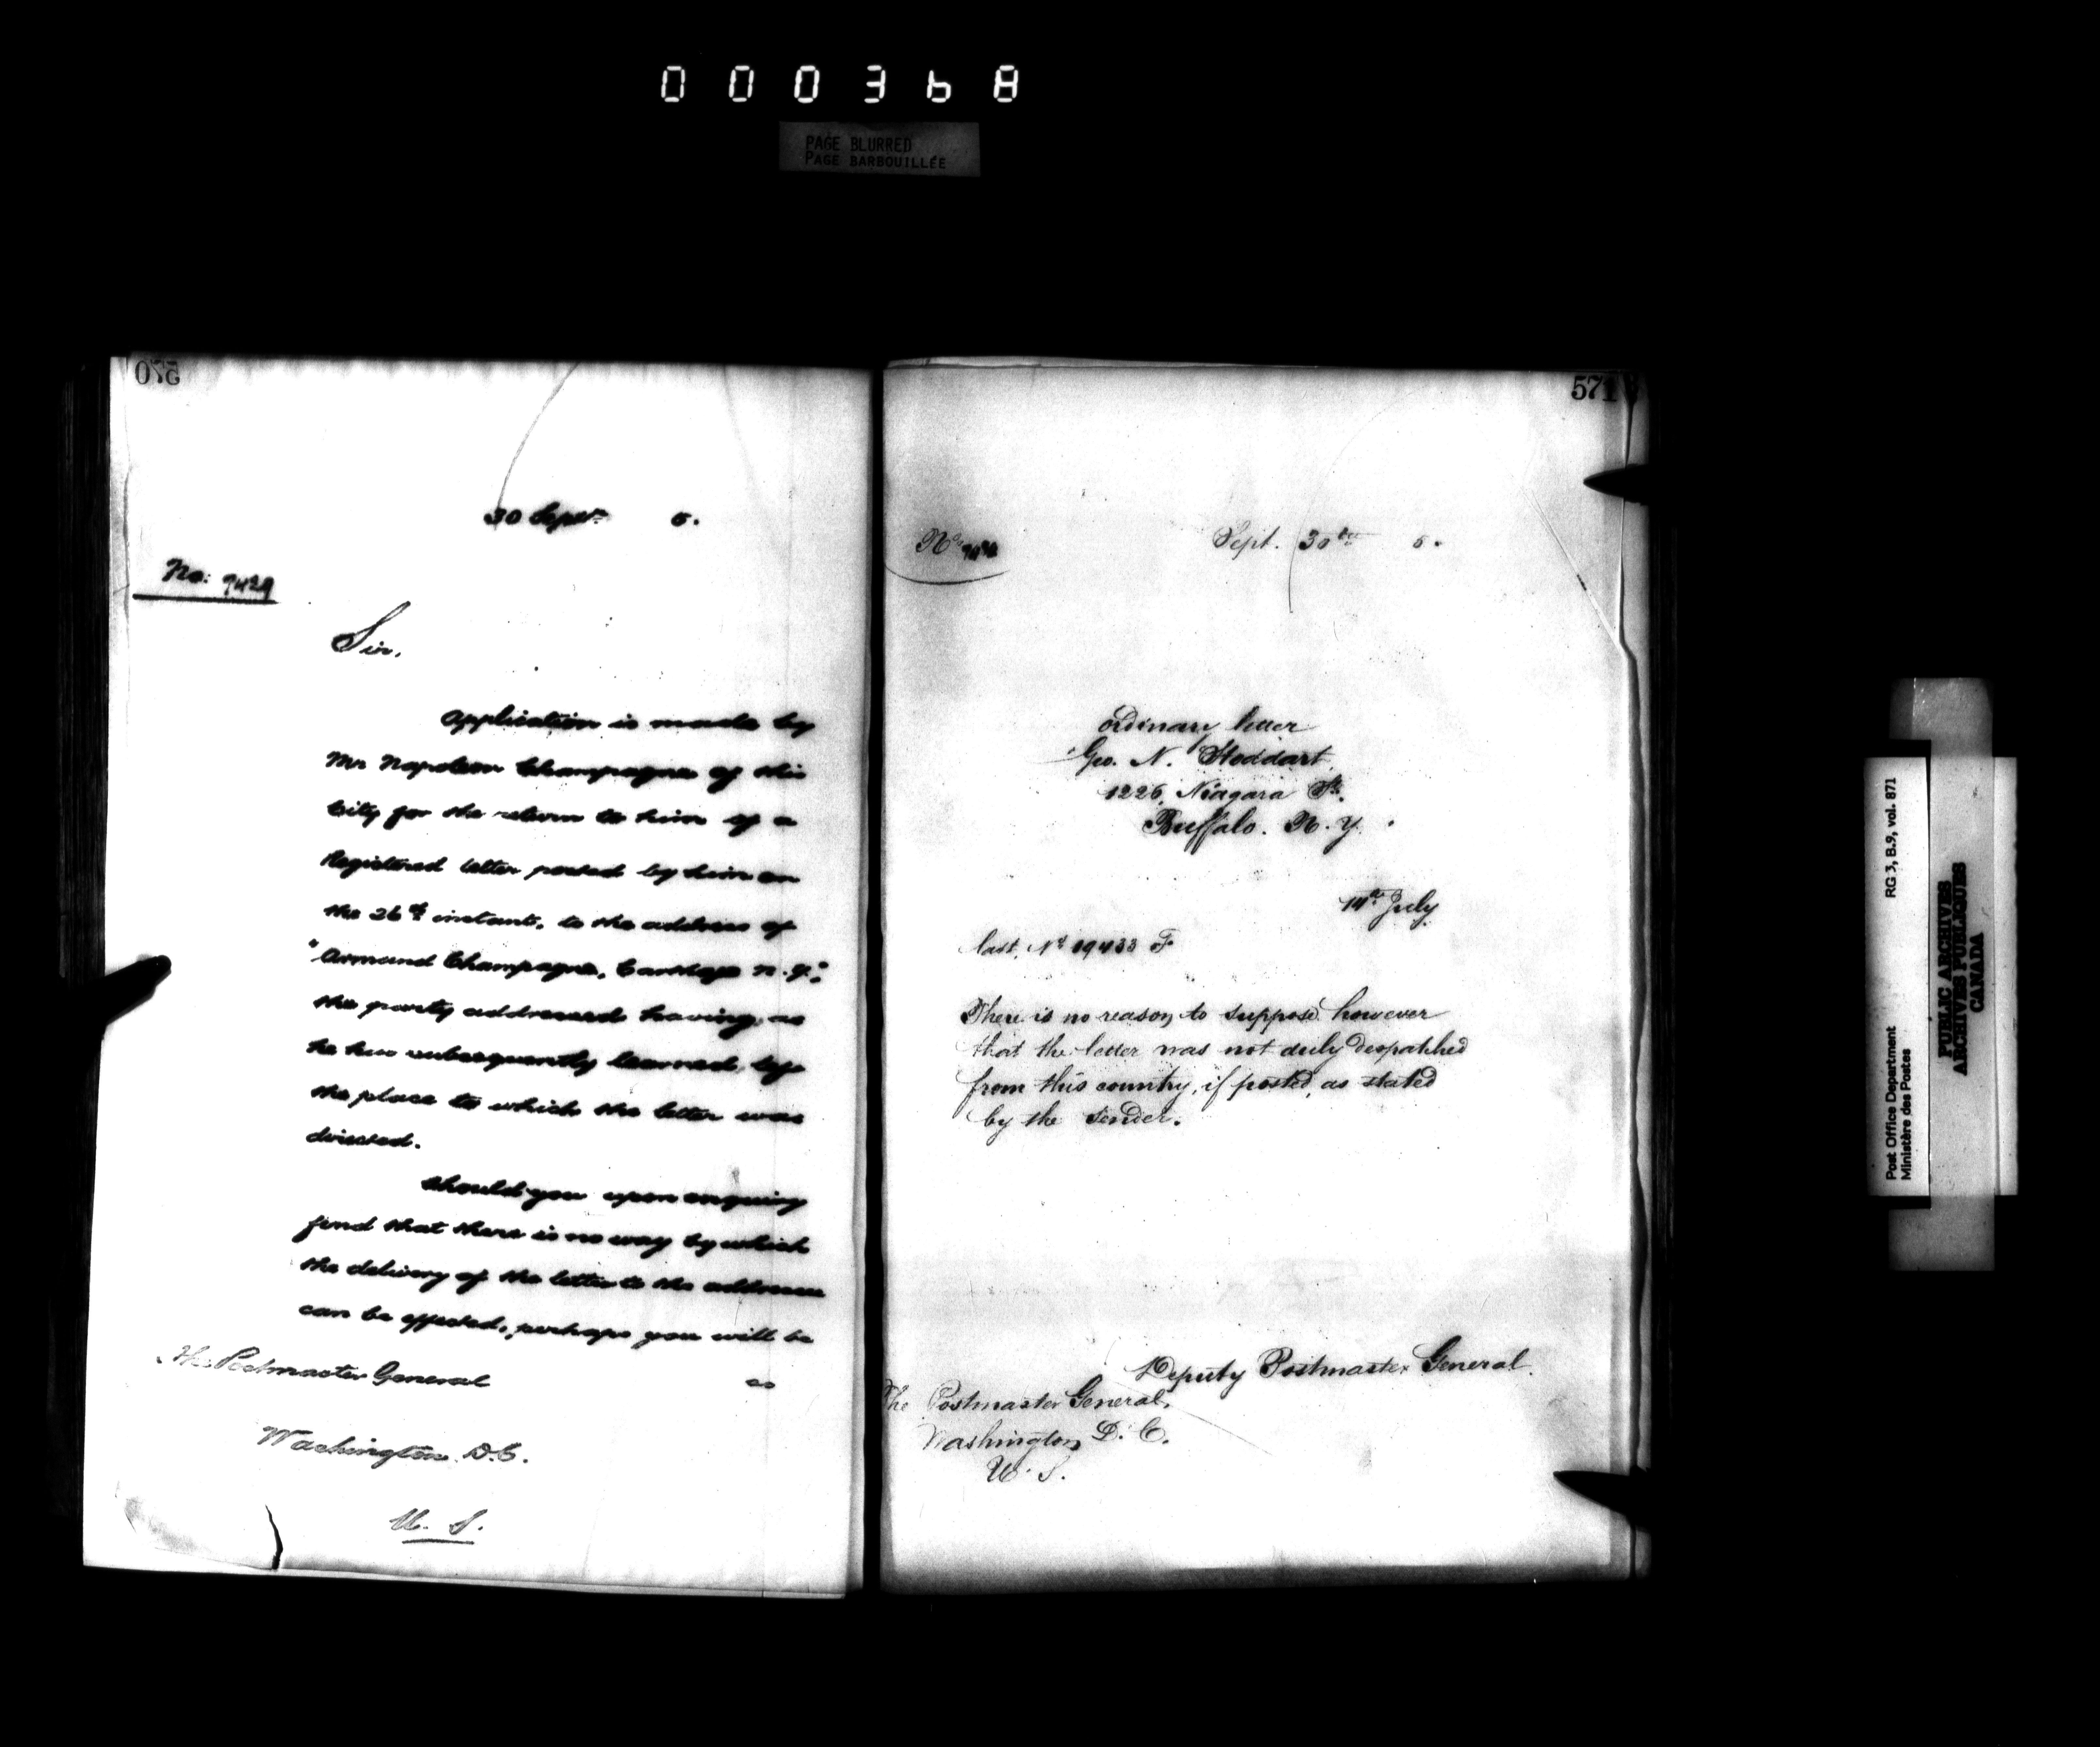 000368
PAGE BLURRED
PAGE BARBOUILLÉE
570
30 Sept. 5.
No: 7429
Sir,
Application is made by
Mr Napoleon Champagne of this
City for the return to him of a
Registered letter posted by him on
the 26th instant, to the address of
"Armand Champagne, Carthage N.Y.",
the party addressed having, as
he has subsequently learned, left
the place to which the letter was
directed.
Should you upon enquiry
find that there is no way by which
the delivery of the letter to the addressee
can be effected, perhaps you will be
so
The Postmaster General
Washington D.C.
U. S.
571
No.
Sept. 30th 5.
Ordinary letter
Geo. N. Stoddart,
1226, Niagara St.
Buffalo. N.Y.
14th July
last, No 19433 F.
There is no reason to suppose however
that the letter was not duly despatched
from this country, if posted, as stated
by the sender.
Deputy Postmaster General.
The Postmaster General,
Washington, D. C.
U. S.
Post Office Department RG 3, B.9, vol. 871
Ministère des Postes
PUBLIC ARCHIVES
ARCHIVES PUBLIQUES
CANADA